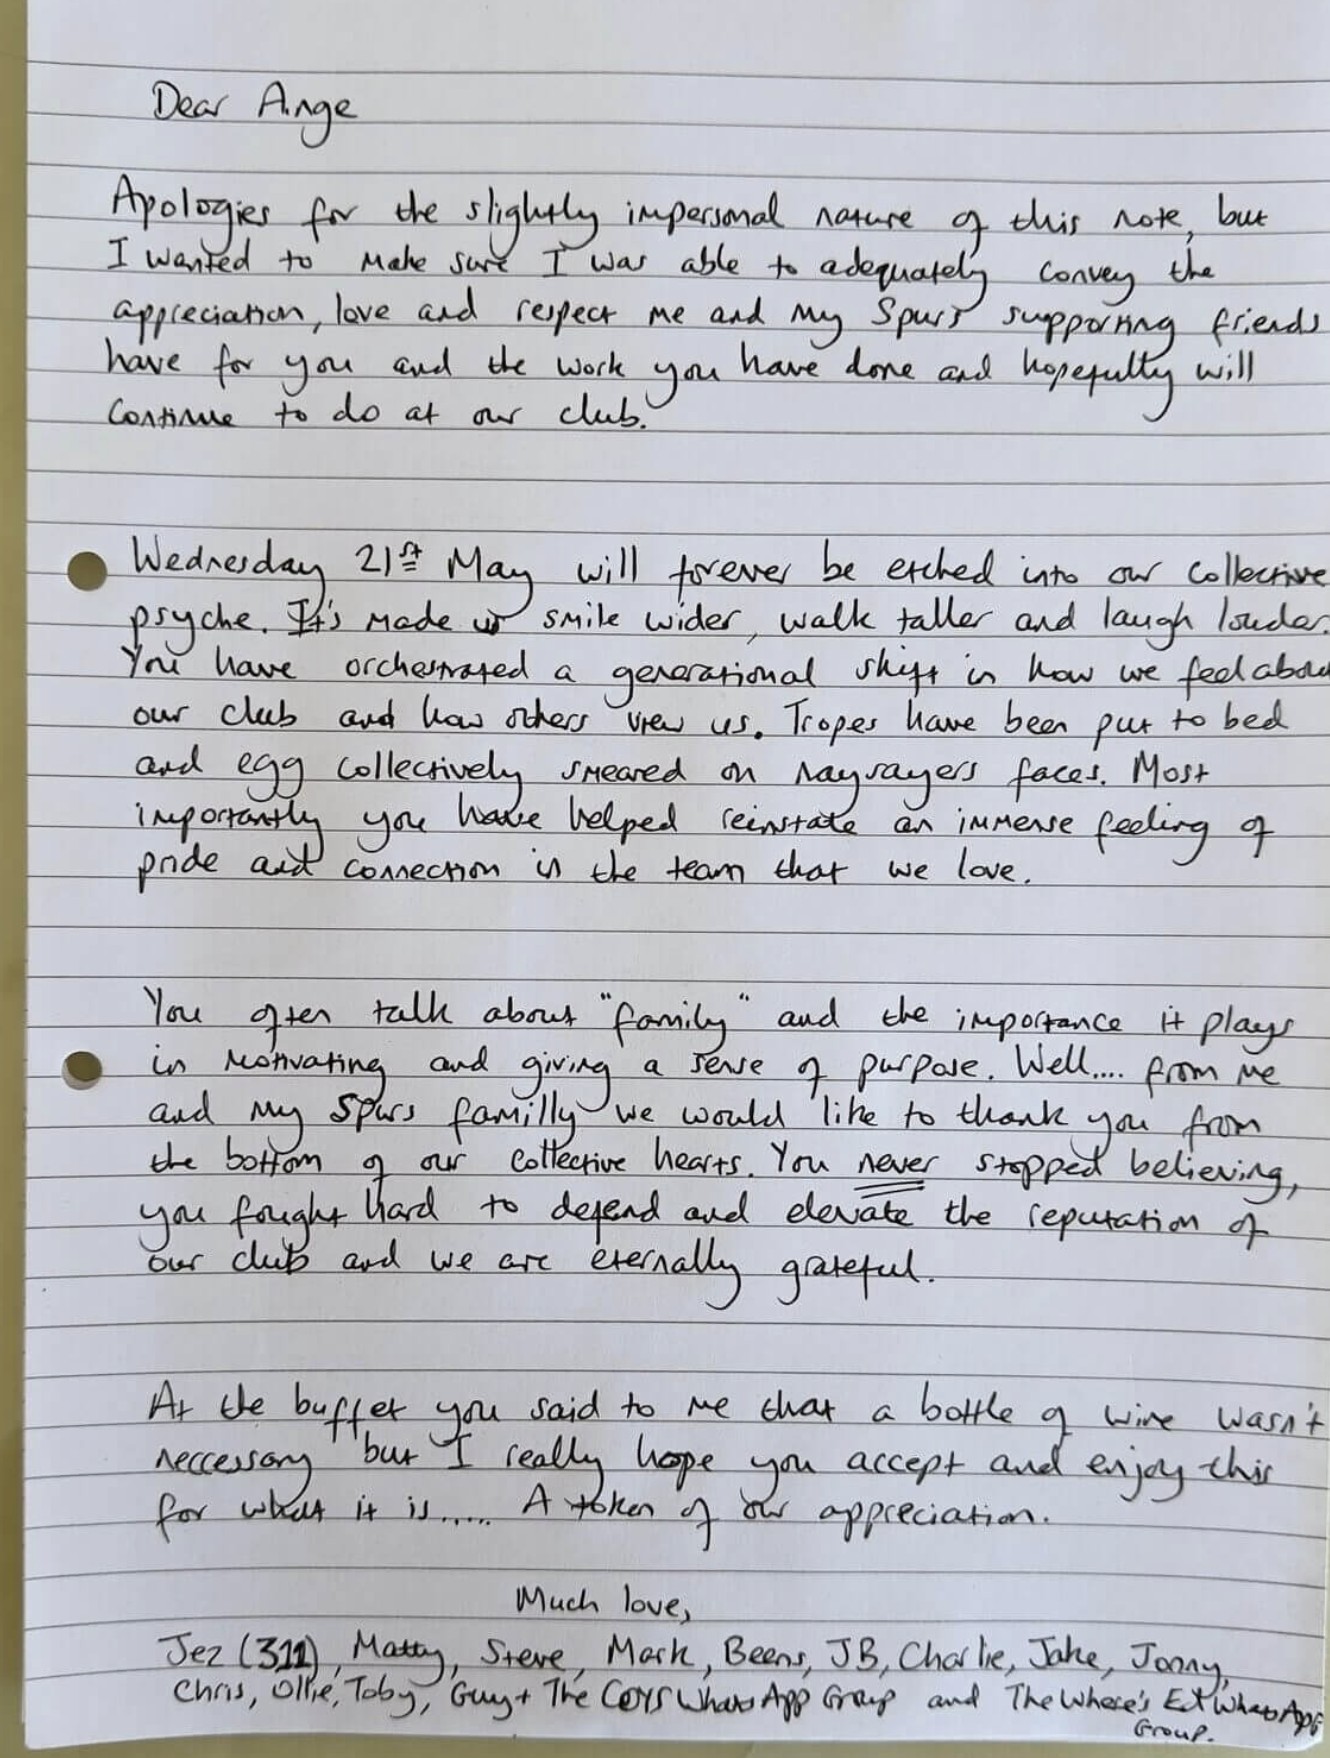 Dear Ange
Apologies for the slightly impersonal nature of this note, but
I wanted to make sure I was able to adequately convey the
appreciation, love and respect me and my Spurs supporting friends
have for you and the work you have done and hopefully will
continue to do at our club.
Wednesday 21st May will forever be etched into our collective
psyche. It's made us smile wider, walk taller and laugh louder.
You have orchestrated a generational shift in how we feel about
our club and how others view us. Tropes have been put to bed
and egg collectively smeared on naysayers faces. Most
importantly you have helped reinstate an immense feeling of
pride and connection in the team that we love.
You often talk about "family" and the importance it plays
in motivating and giving a sense of purpose. Well.... from me
and my Spurs familly we would like to thank you from
the bottom of our collective hearts. You never stopped believing,
you fought hard to defend and elevate the reputation of
our club and we are eternally grateful.
At the buffet you said to me that a bottle of wine wasn't
neccessary but I really hope you accept and enjoy this
for what it is..... A token of our appreciation.
Much love,
Jez (311), Matty, Steve, Mark, Beens, JB, Charlie, Jake, Jonny,
Chris, Ollie, Toby, Guy + The COYS WhatsApp Group and The Where's Ex WhatsApp
Group.